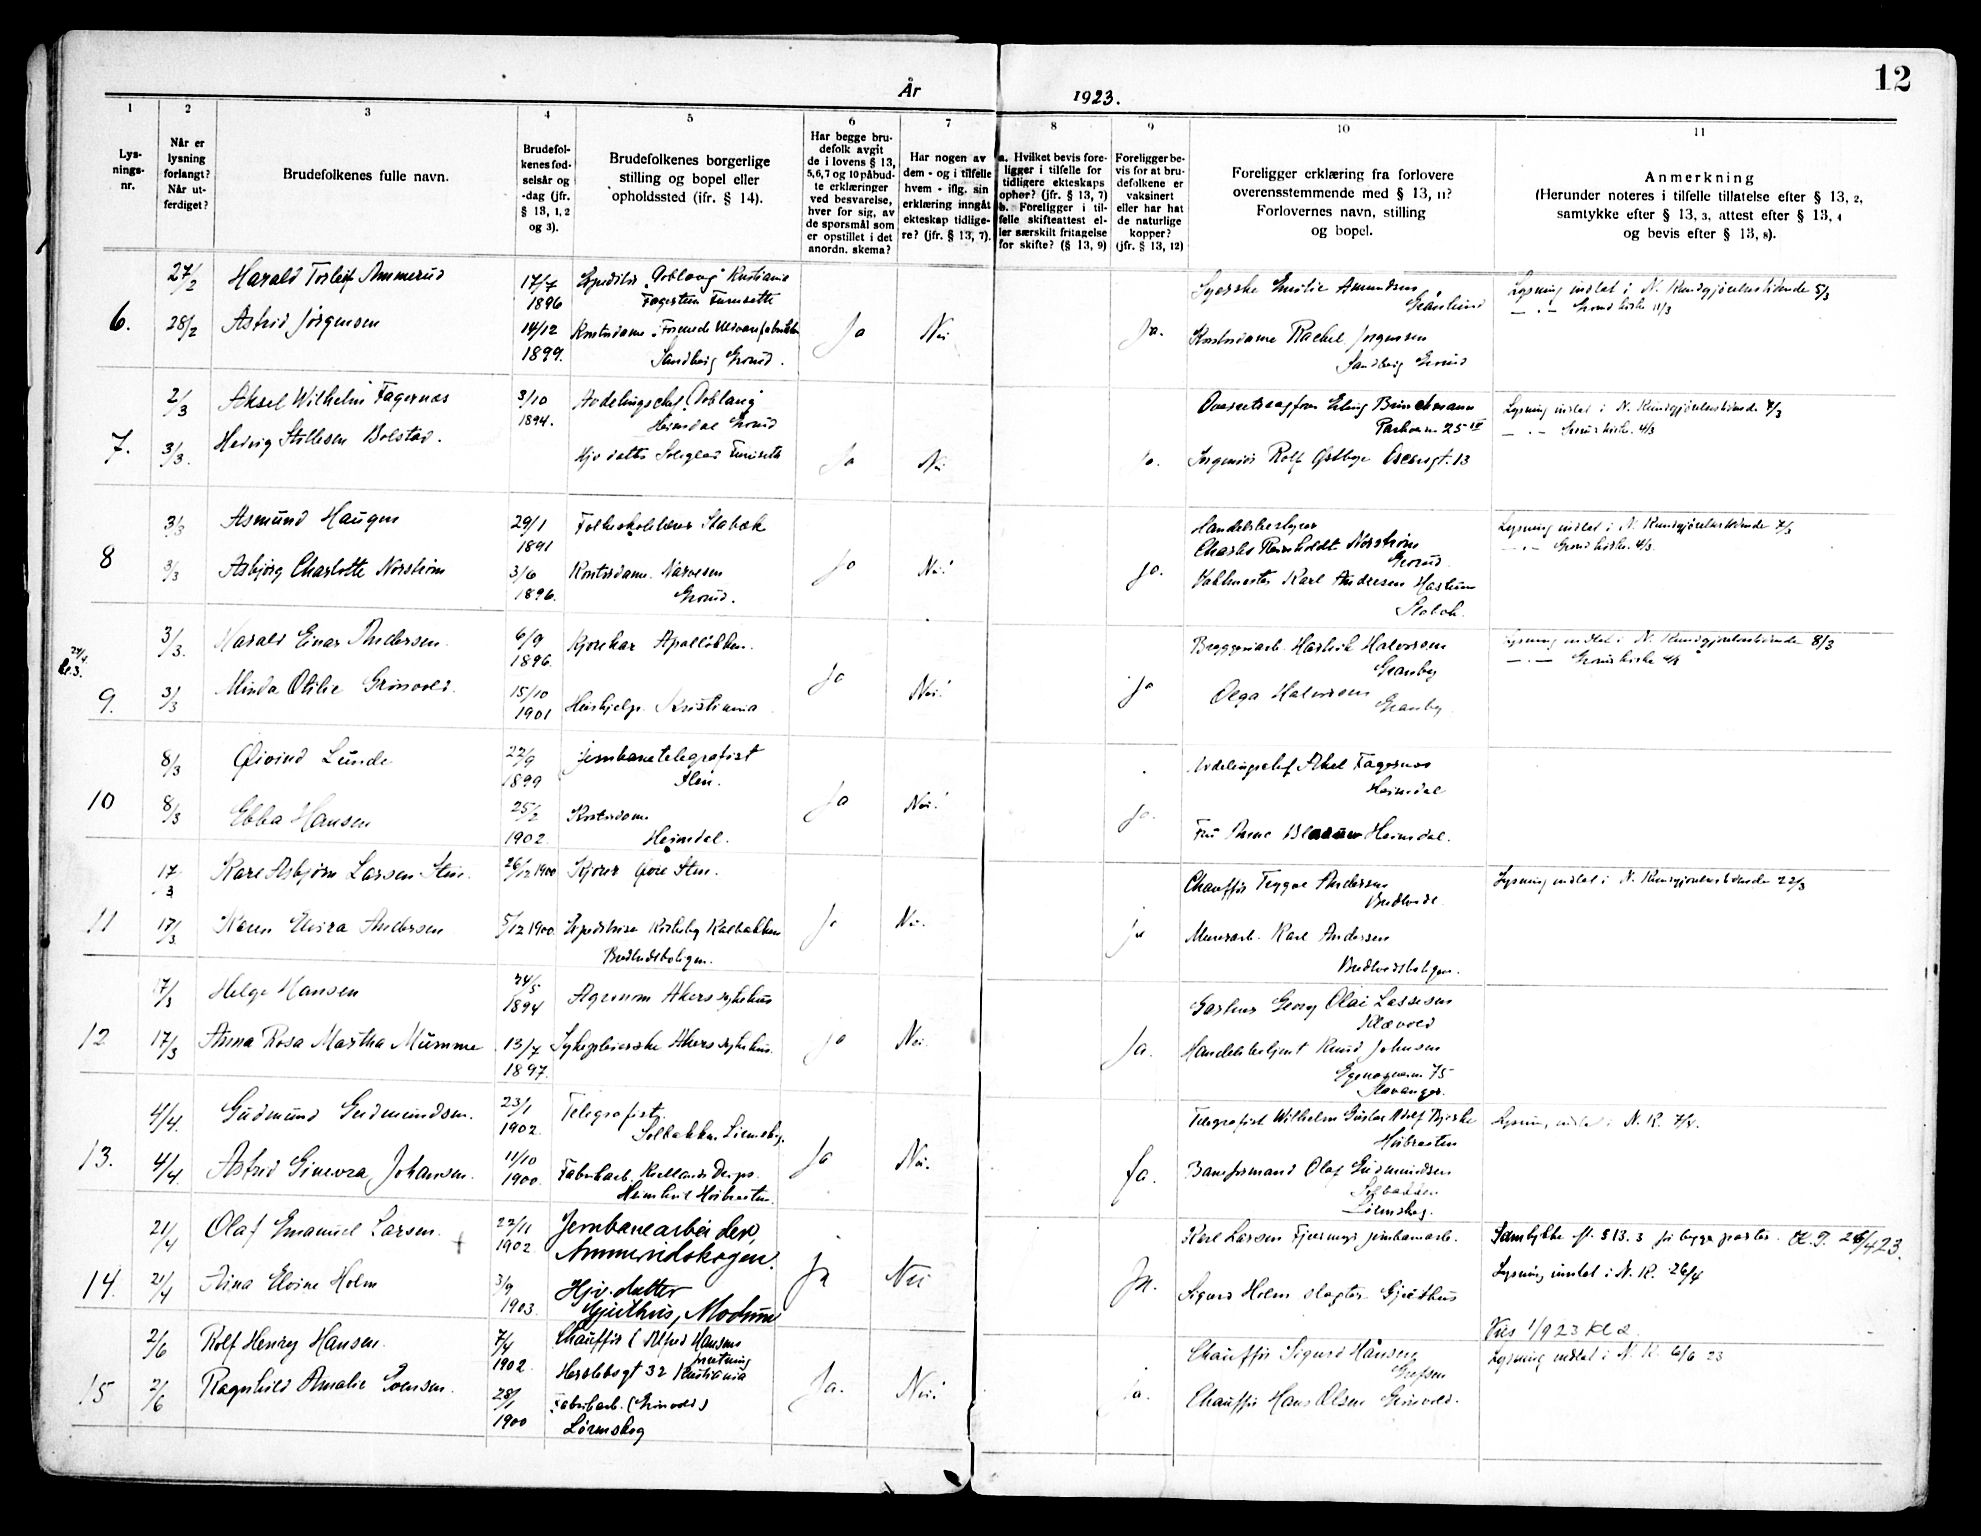 12
År 1923.
1 2 3 4 5 6 7 8 9 10 11
Lys-
nings-
nr.
Når er
lysning
forlangt?
Når ut-
ferdiget?
Brudefolkenes fulle navn.
Brudefol-
kenes fød-
selsår og
-dag (jfr.
§ 13, 1, 2
og 3).
Brudefolkenes borgerlige
stilling og bopel eller
opholdssted (ifr. § 14).
Har begge bru-
defolk avgit
de i lovens § 13,
5,6,7 og 10 påbud-
te erklæringer
ved besvarelse,
hver for sig, av
de spørsmål som
er opstillet i det
anordn. skema?
Har nogen av
dem - og i tilfelle
hvem - iflg. sin
erklæring inngåt
ekteskap tidlige-
re? (jfr. § 13, 7).
a. Hvilket bevis fore-
ligger i tilfelle for
tidligere ekteskaps
ophør? (jfr. § 13, 7)
b. Foreligger i til-
felle skifteattest el-
ler særskilt fritagelse
for skifte? (§ 13, 9)
Foreligger be-
vis for at bru-
defolkene er
vaksinert
eller har hat
de naturlige
kopper?
(jfr. § 13, 12)
Foreligger erklæring fra forlovere
overensstemmende med § 13, 11?
Forlovernes navn, stilling
og bopel.
Anmerkning
(Herunder noteres i tilfelle tillatelse efter § 13, 2,
samtykke efter § 13, 3, attest efter § 13, 4
og bevis efter § 13, 8).
6. 27/2 Harald Torleif Ammerud 17/7 1896
28/2 Astrid Jørgensen 14/12 1899. Kontordame
Sandberg Grorud. Ja Nei Ja.
Syerske Emilie Amundsen
Grønlund
Kontordame Rachel Jørgensen
Sandberg Grorud
Lysning indtat i N. Kundgjørelsestidende 5/3
— . — Grorud kirke 11/3
7. 2/3 Aksel Wilhelm Fagernæs 3/10 1894. Avdelingschef
Heimdal Grorud
3/3. Hedvig Bolstad. Ja Nei
Parkveien 25
Ingeniør Rolf Østbye Oscarsgt. 13
Lysning indtat i N. Kundgjørelsestidende 7/3
— . — Grorud kirke. 4/3
8 3/3 Asmund Haugen 29/1 1891 Folkeskolelærer Stabæk
3/3 Asbjørg Charlotte Norstrøm 3/6 1896. Kontordame. Narvesen
Grorud. Ja Nei! Ja.
Handelsbestyrer
Charles Reinholdt Norstrøm
Grorud
Karl Andresen
Stabæk.
Lysning indtat i N. Kundgjørelsestidende 7/3
— . — Grorud kirke. 4/3.
9. 3/3. Harald Einar Andersen. 6/9 1896. Kjørekar Apalløkken.
3/3 Minda Otilie Grinvold. 15/10 1901 Hushjelp. Kristiania Ja Nei! Ja
Bryggeriarb. Halvorsen
Granby
Olga Halvorsen
Granby.
Lysning indtat i N. Kundgjørelsestidende 8/3
— . — Grorud kirke
10 8/3 Øivind Lunde 22/9 1899 Jernbanetelegrafist
8/3 Ebba Hansen 25/2 1902. Kontordame
Heimdal. Ja Nei! Ja.
Avdelingschef Aksel Fagernæs
Heimdal
Fru Heimdal.
11 17/3 Kåre Asbjørn Larsen Sten. 26/12 1900 Kjører Øvre Sten.
17/3 Karen Elvira Andersen 5/12 1900. Kalbakken
Bredtvedtboligen. Ja Nei. ja
Chauffør Trygve Andersen
Bredtvedt.
Murerarb. Karl Andersen
Bredtvedtboligen.
Lysning indtat i N. Kundgjørelsestidende 22/3
12 17/3 Helge Hansen 24/5 1894 Agronom Akers sykehus
17/3 Anna Rosa Martha Mumme 13/7 1897. Sykepleierske Akers sykehus. ja Nei. Ja.
Gartner Georg Olai Lassesen
Klævold
Handelsbetjent Knud Johnsen
Egenesveien 75
Stavanger.
13. 4/4. Gudmund Gudmundsen. 23/1 1902. Telegrafist,
Solbakken Lørenskog.
4/4. Astrid Ginevra Johansen. 11/10 1900. Fabrikarb.
Høibraaten. Ja Nei. Ja.
Telegrafist Wilhelm Gustav Adolf Bjerke
Høibraaten
Baneformand Olaf Gudmundsen
Solbakken
Lørenskog.
Lysning indtat i N. K. 7/4.
14. 21/4 Olaf Emanuel Larsen. 22/11 1902 Jernbanearbeider,
Ammerudskogen.
21/4 Aina Elvine Holm 3/9 1903. Hjv. datter
Gjeithus, Modum Ja Nei Ja.
Karl Larsen jernbanearb.
Sigurd Holm slagter Gjeithus
Samtykke efter § 13. 3 for begge parter. 26/4 23.
Lysning inntat i N. K. 26/4
Vies 1/9 23 Kl 2.
15 2/6 Rolf Henry Hansen. 7/4 1902. Chauffør (Alfred Hansens
forretning
Herslebsgt 32 Kristiania
2/6 Ragnhild Amalie Svensen. 28/1 1900 Fabrikarb. (Grinvold)
Lørenskog Ja. Nei! Ja.
Chauffør Sigurd Hansen
Grefsen
Chauffør Hans Olsen Grinvold.
Lysning indtat i N. K. 6/6 23